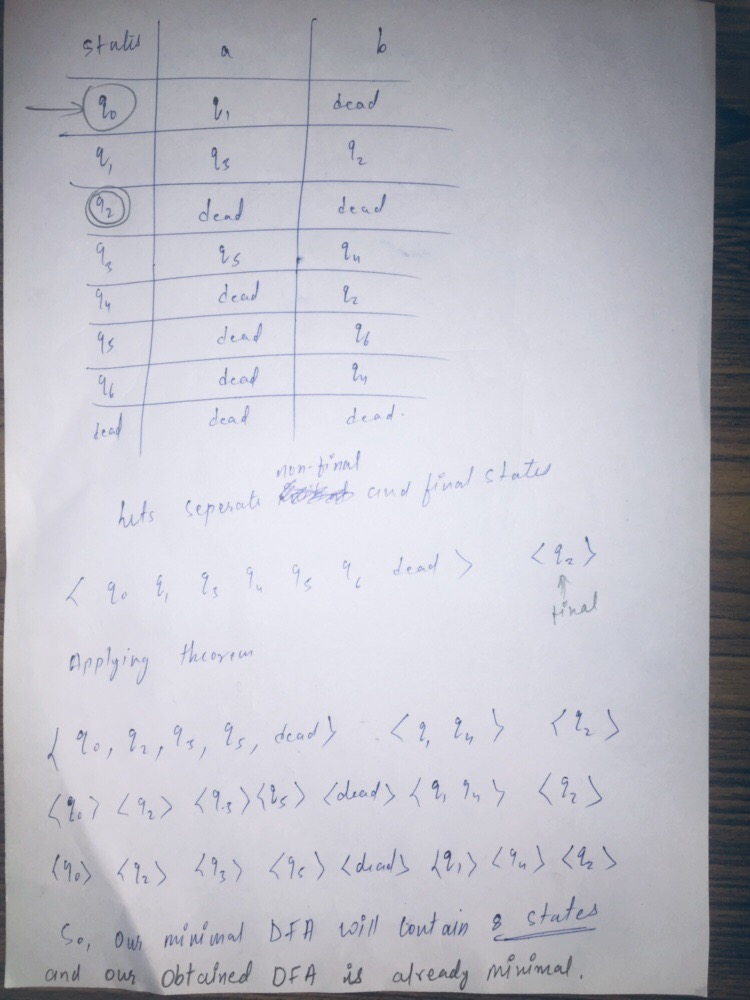 states a b
q0 q1 dead
q1 q3 q2
q2 dead dead
q3 q5 q4
q4 dead q2
q5 dead q6
q6 dead q4
dead dead dead.
non-final
Lets seperate and final states
< q0 q1 q3 q4 q5 q6 dead > < q2 >
final
Applying theorem
< q0, q2, q3, q5, dead > < q1 q4 > < q2 >
<q0> <q2> <q3> <q5> <dead> <q1 q4> <q2>
<q0> <q2> <q3> <q5> <dead> <q1> <q4> <q2>
So, our minimal DFA will contain 8 states
and our obtained DFA is already minimal.